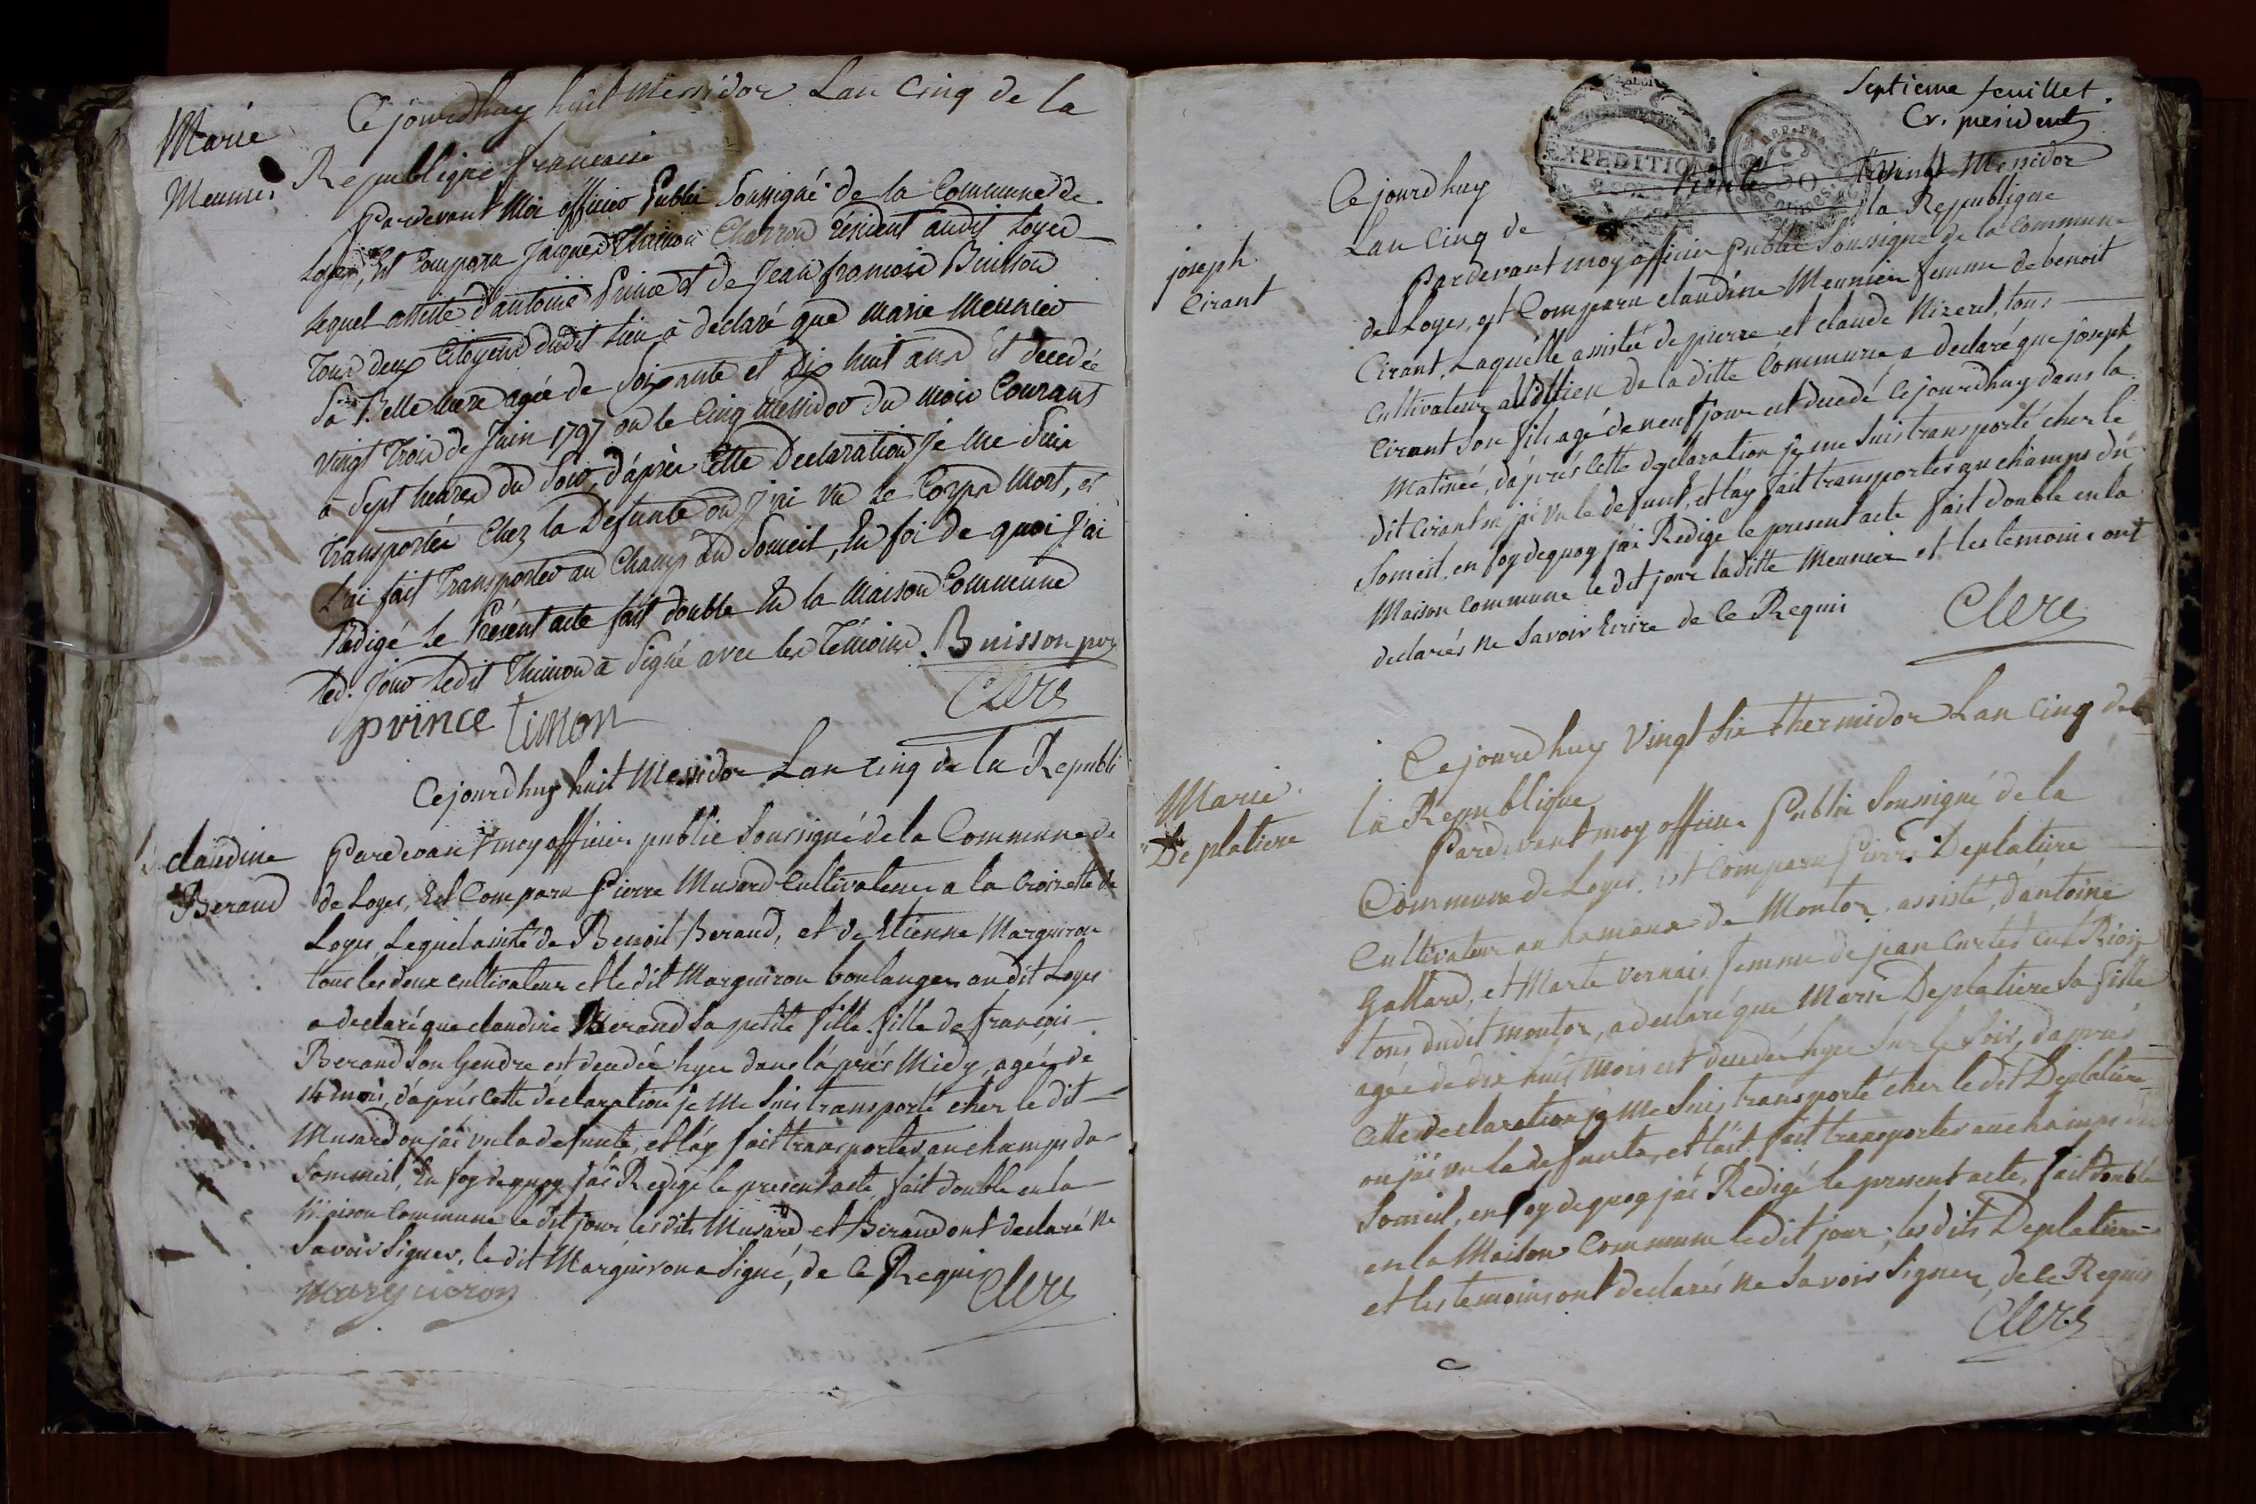 Marie
Meunier
Ce jourdhuy huit messidor Lan Cinq de la
Republique francaise
Pardevant Moi officier Public Soussigné de la Commune de
Loyes, Est Comparu Jacques Thimon Charron résident audit Loyes
Lequel assisté d'antoine Prince et de Jean francois Buisson
Tous deux Citoyens dudit lieu à declaré que marie Meunier
Sa Belle mere agée de Soixante et dix huit ans Est decedée
vingt Trois de Juin 1797 ou le Cinq messidor du mois Courant
à Sept heures du Soir, d'après Cette Declaration Je me Suis
Transportée Chez la Défunte où J'ai vu le Corps Mort, et
L'ai fait Transporter au Champ du Someil, En foi de quoi J'ai
Rédigé le Présent acte fait double En la Maison Commune
led. Jour ledit Thimon à Signé avec les Témoins. Buisson
prince timon Clerc
claudine
Beraud
Ce jourdhuy huit Messidor Lan cinq de la Republi
Pardevant moy officier public Soussigné de la Commune de
de Loyes, Est Comparu Pierre Musard Cultivateur a la Croizette de
Loyes, Lequel assisté de Benoit Beraud, et de Etienne Marguiron
tous les deux cultivateur et le dit Marguiron boulanger au dit Loyes
a declaré que claudine Beraud Sa petite fille, fille de françois
Beraud Son Gendre est decedée hyer dans l'aprés Midy, agée de
14 mois, d'aprés Cette déclaration je me Suis transporté cher le dit
Musard ou jai vu la defunte, et l'ay fait transporter au champs du
Sommeil, En foy de quoy j'ai Redigé le present acte fait double en la
Maison Commune le dit jour, les dits Musard et Beraud ont declaré ne
Savoir Signer, le dit Marguiron a Signé, de Ce Requis
Marguiron Clerc
Septieme feuillet.
Cr. president
EXPEDITION
50
joseph
Cirant
Ce jourdhuy Messidor
Lan Cinq de la Republique
Pardevant moy officier public Soussigné de la Commune
de Loyes, est Comparu claudine Meunier femme de benoit
Cirant, Laquelle assistée de pierre et claude Nizerel, tous
Cultivateur audit lieu de la ditte Commune, a declaré que joseph
Cirant Son fils agé de neuf jour est decedé Ce jourdhuy dans la
Matineé, d'aprés Cette declaration je me Suis transporté cher le
dit Cirant ou jai vu le defunt, et l'ay fait transporter au champs du
Someil, en foy de quoy jai Redigé le present acte fait double en la
Maison Commune le dit jour la ditte Meunier et les temoins ont
declarés ne Savoir Ecrire de Ce Requis
Clerc
Marie
De platiere
Ce jourdhuy Vingt Six thermidor Lan Cinq de
la Republique
Pardevant moy officier Public Soussigné de la
Commune de Loyes. est Comparu Pierre Deplatiere
Cultivateur au hamaux de Montor, assisté d'antoine
Gallard, et Marte Vernais femme de jean Curtet
tous dudit montor, a declaré que Marie Deplatiere Sa fille
agée de dix huit Mois est decedée hyer Sur le Soir, d'aprés
Cette declaration je Me Suis transporté cher le dit Deplatiere
ou jai vu la defunte, et l'ait fait transporter au champs du
Someil, en foy de quoy jai Redigé le present acte, fait double
en la Maison Commune le dit jour, les dits Deplatiere
et les temoins ont declarés ne Savoir Signer, de Ce Requis
Clerc